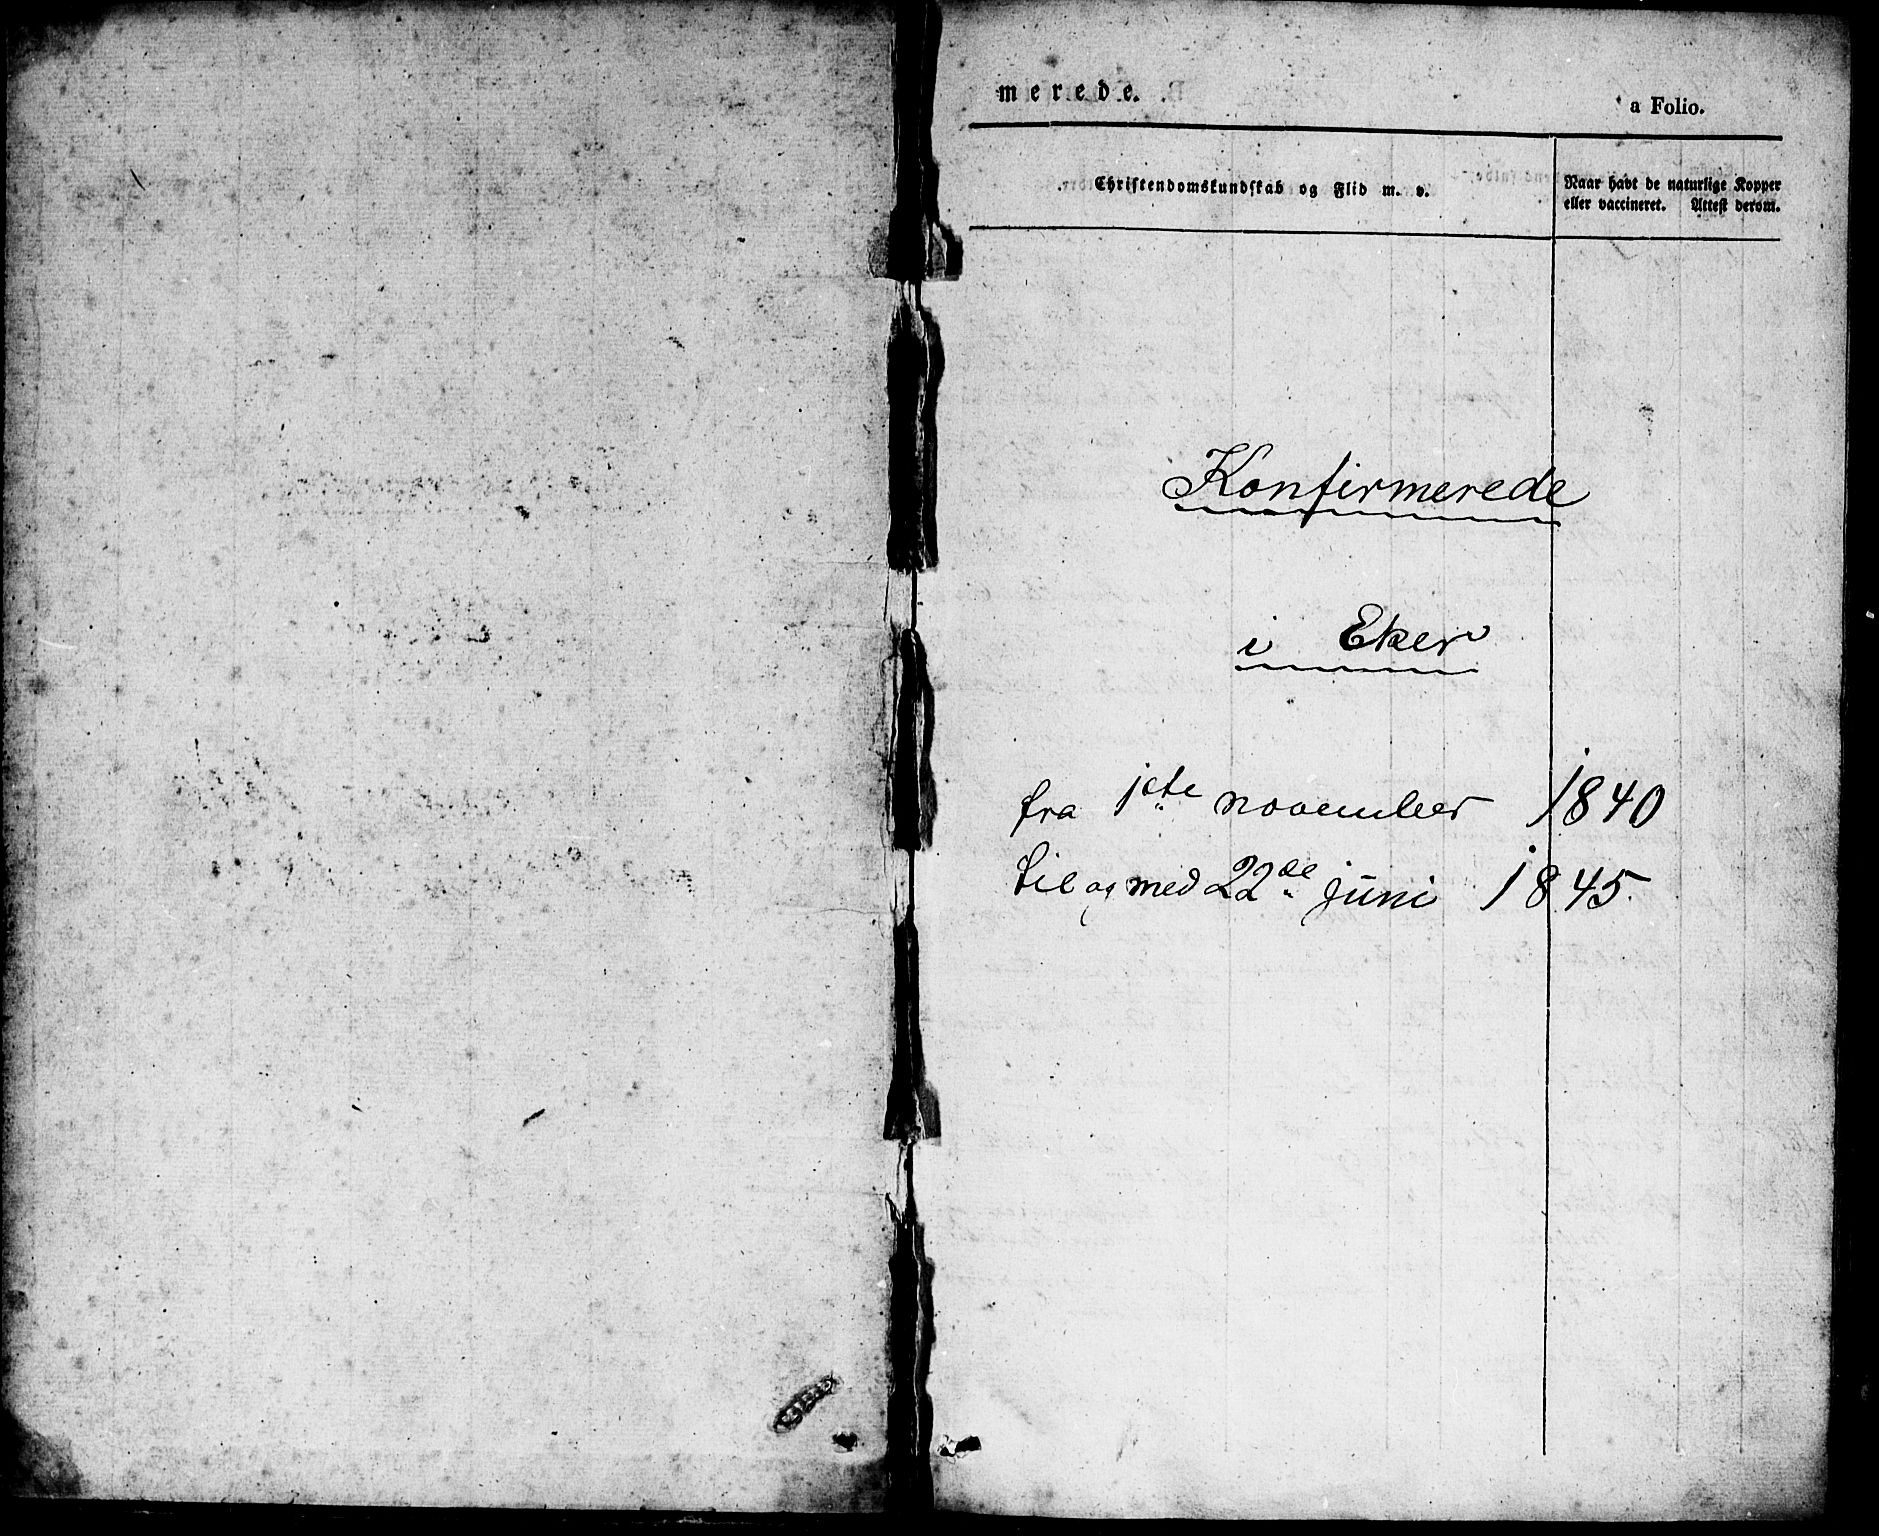 merede.
a Folio.
Christendomskundskab og Flid m. v.
Naar havt de naturlige Kopper
eller vaccineret. Attest derom.
Konfirmerede
i Eker
fra 1ste november 1840
til og med 22de juni 1845.